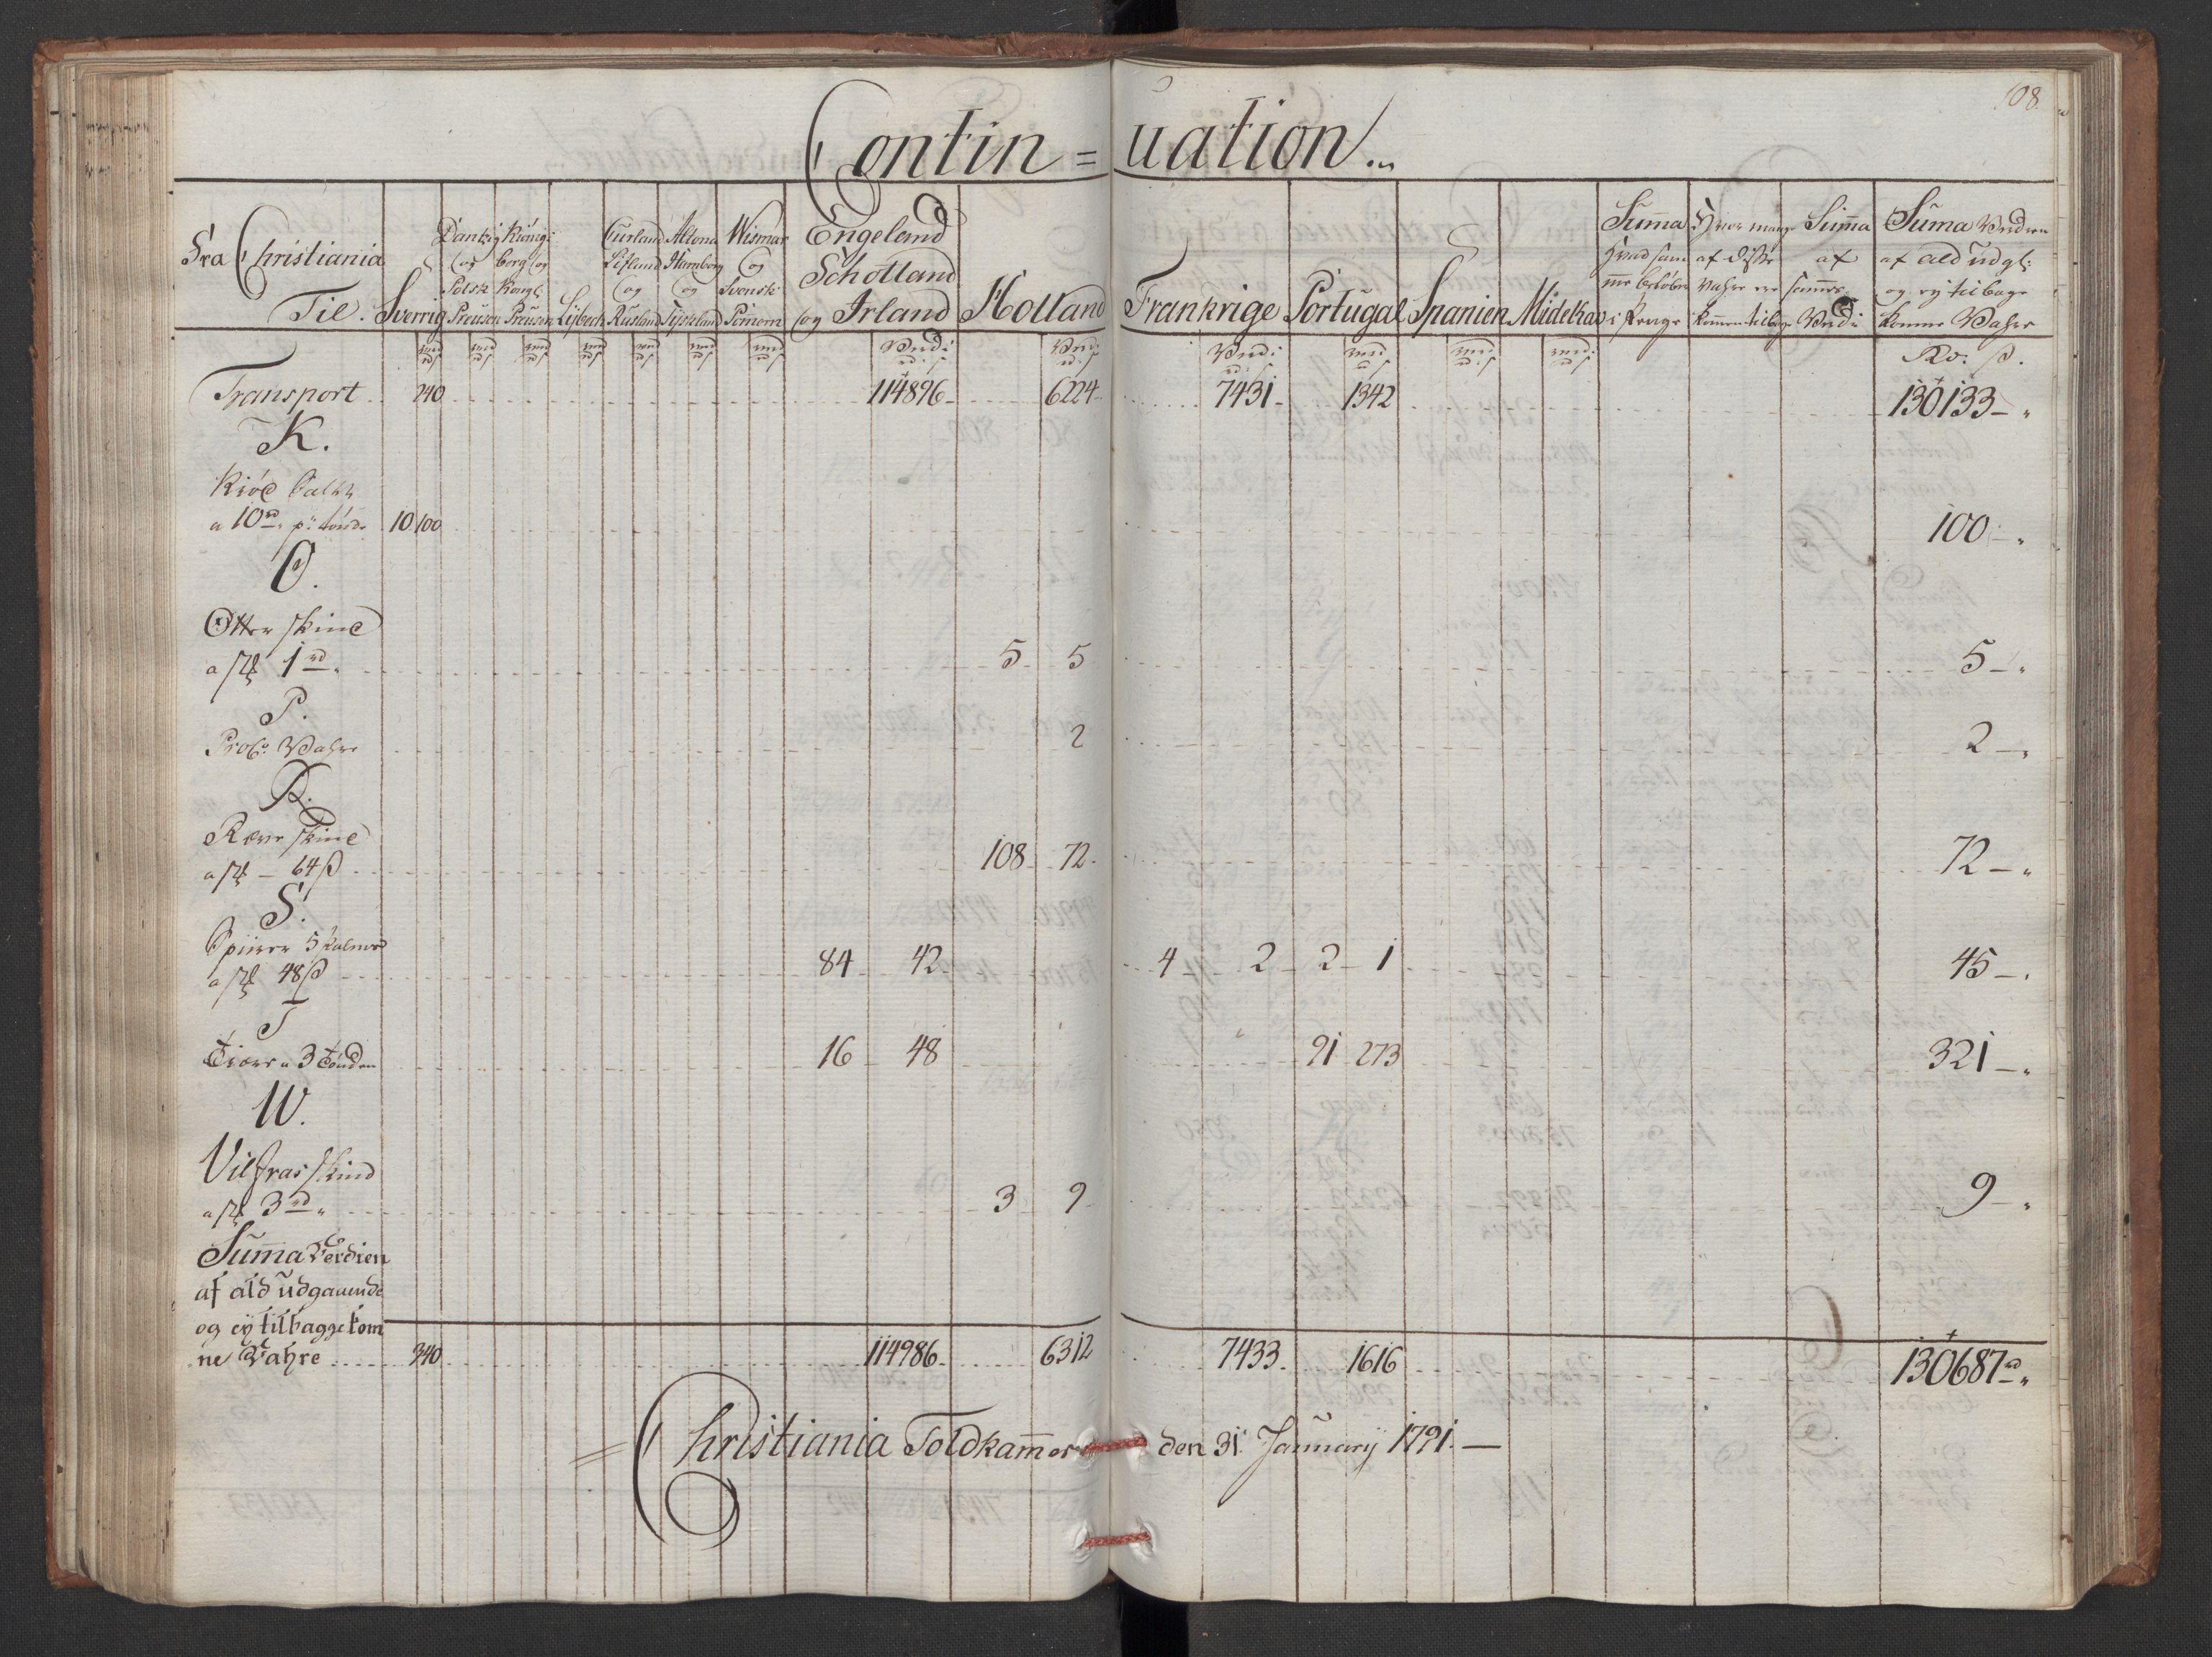 108.
Contin = uation
Fra Christiania
Til.
Sverrig
Dantzig og Polsk Preusen
Kiönigsberg og Kongl: Preusen
Lÿbech
Curland Lifland og Rusland
Altona Hamborg og Tÿskland
Wismar og Svensk Pomern
Engeland Schotland og Irland
Holland
Frankrige
Portugal
Spanien
Midelhav
Sum̄a
Hvor mange af disse Vahre ere kommen tilbage
Sum̄a af sammes Verdi
Suma Verdien af ald udgl: og eÿ tilbage komne Vahre
Verdi Verdi Verdi Rd: ß.
Transport 240 114896 6224 7431 1342 130133 - „
K.
Kiöd Saltet
a 10 rd. pr: tönde 10 100 100 - „
O.
Otter skind
a st 1 rd „ 5 5 5 - „
P.
Prob: Vahre 2 2 - „
R.
Ræve skind
a st - 64 ß 108 72 72 - „
S.
Spiirer 5 Palmer
a st 48 ß 84 42 4 2 2 1 45 - „
T
Tiære a 3 Tönden 16 48 91 273 321 - „
W.
Vilfras skind
a st 3 rd „ 3 9 9 - „
Sum̄a Verdien
af ald udgauende
og eÿ tilbaggekom
ne Vahre 340 114986 6312 7433 1616 130687 rd „
= Christiania Toldkam̄er den 31. Januarÿ 1791. —